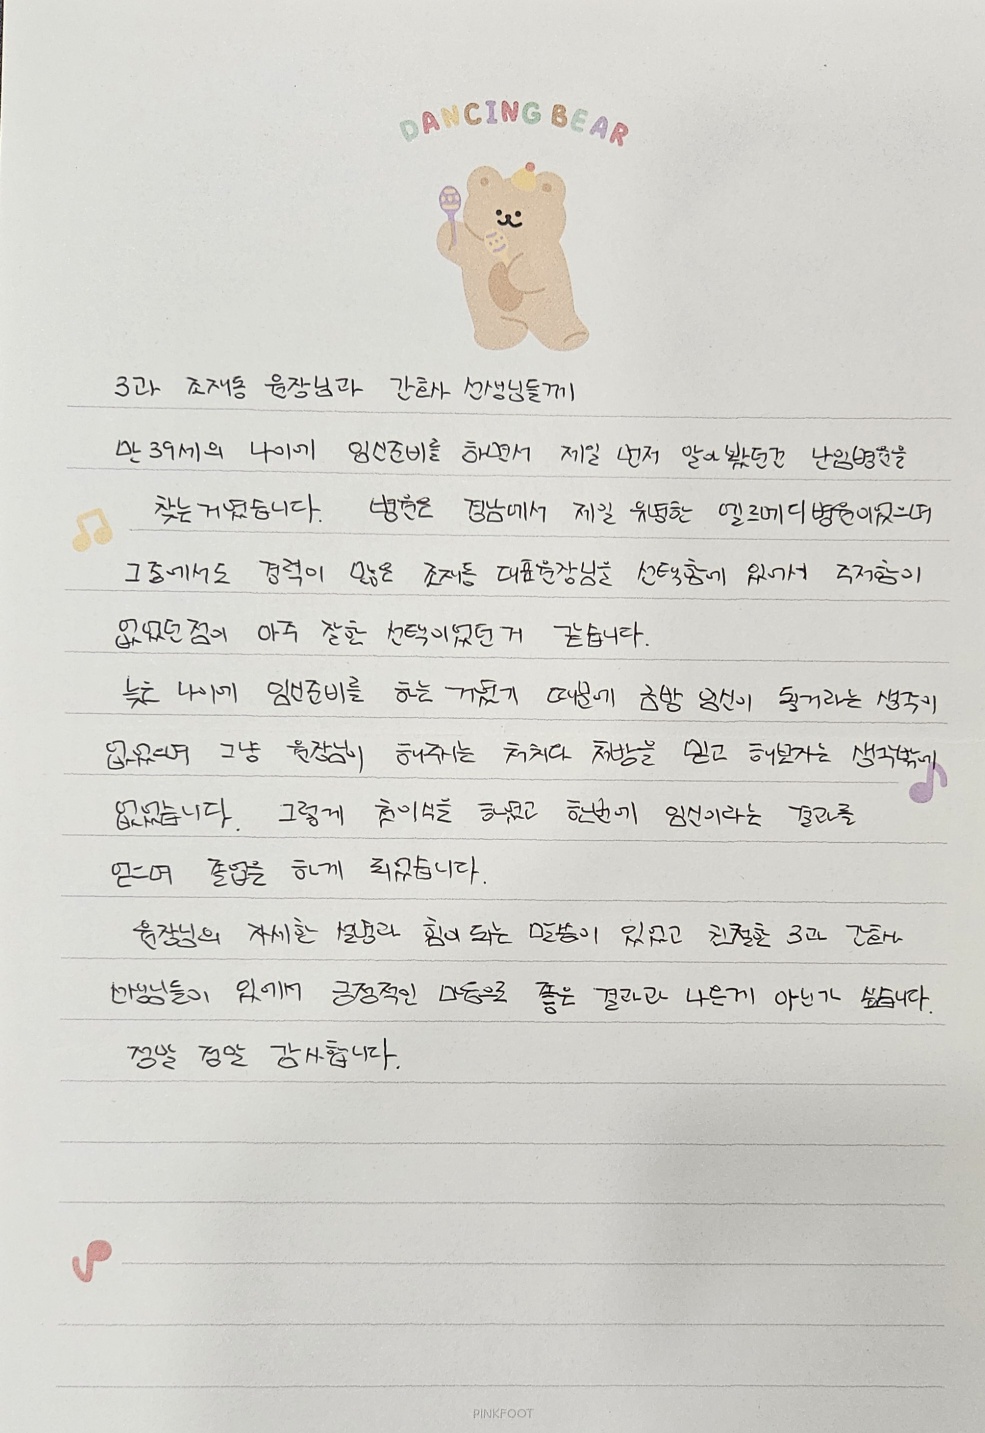 DANCING BEAR
3과 조재동 원장님과 간호사 선생님들께
만 39세의 나이에 임신준비를 하면서 제일 먼저 알아봤던건 난임병원을
찾는거였습니다. 병원은 경남에서 제일 유명한 엘르메디병원이였으며
그중에서도 경력이 많은 조재동 대표원장님을 선택함에 있어서 주저함이
없었던점이 아주 잘한 선택이였던거 같습니다.
늦은 나이에 임신준비를 하는 거였기 때문에 금방 임신이 될거라는 생각이
없었으며 그냥 원장님이 해주시는 처치다 처방을 믿고 해보자는 생각밖에
없었습니다. 그렇게 첫이식을 하였고 한번에 임신이라는 결과를
얻으며 졸업을 하게 되었습니다.
원장님의 자세한 설명과 힘이 되는 말씀이 있었고 친절한 3과 간호사
선생님들이 있에서 긍정적인 마음으로 좋은 결과과 나온게 아닌가 싶습니다.
정말 정말 감사합니다.
PINKFOOT